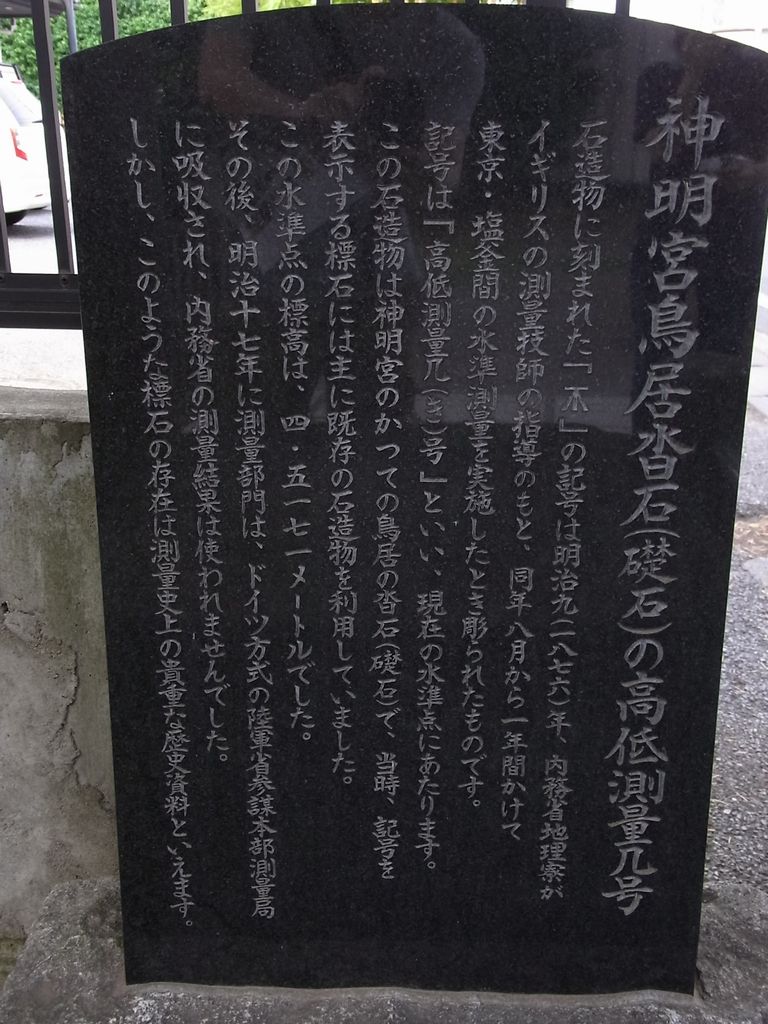 神明宮鳥居沓石(礎石)の高低測量几号
石造物に刻まれた「不」の記号は明治九(一八七六)年、内務省地理寮が
イギリスの測量技師の指導のもと、同年八月から一年間かけて
東京・塩釜間の水準測量を実施したとき彫られたものです。
記号は「高低測量几(き)号」といい、現在の水準点にあたります。
この石造物は神明宮のかつての鳥居の沓石(礎石)で、当時、記号を
表示する標石には主に既存の石造物を利用していました。
この水準点の標高は、四・五一七一メートルでした。
その後、明治十七年に測量部門は、ドイツ方式の陸軍省参謀本部測量局
に吸収され、内務省の測量結果は使われませんでした。
しかし、このような標石の存在は測量史上の貴重な歴史資料といえます。